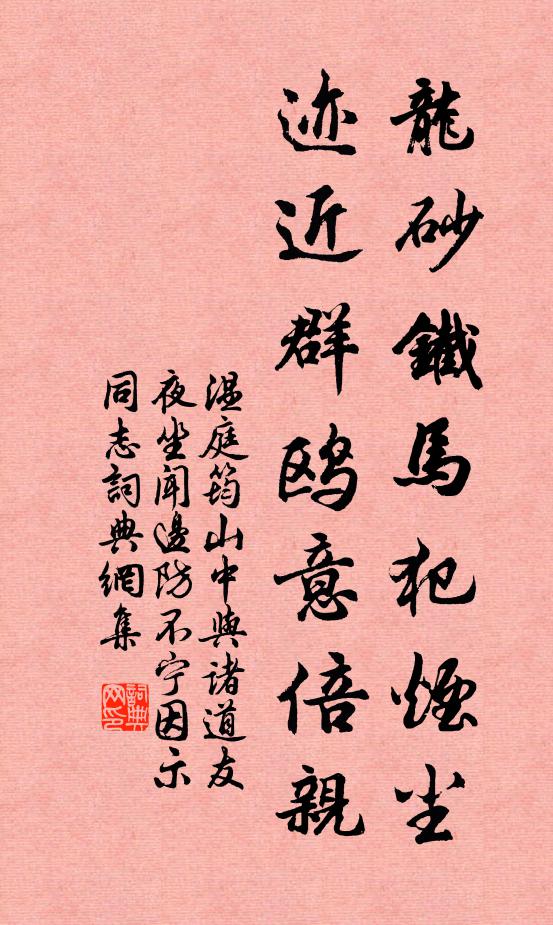 龍砂鐵馬犯煙塵
迹近群鷗意倍親
溫庭筠山中與諸道友
夜坐聞邊防不宁因示
同志詞典網集
詞典
网印